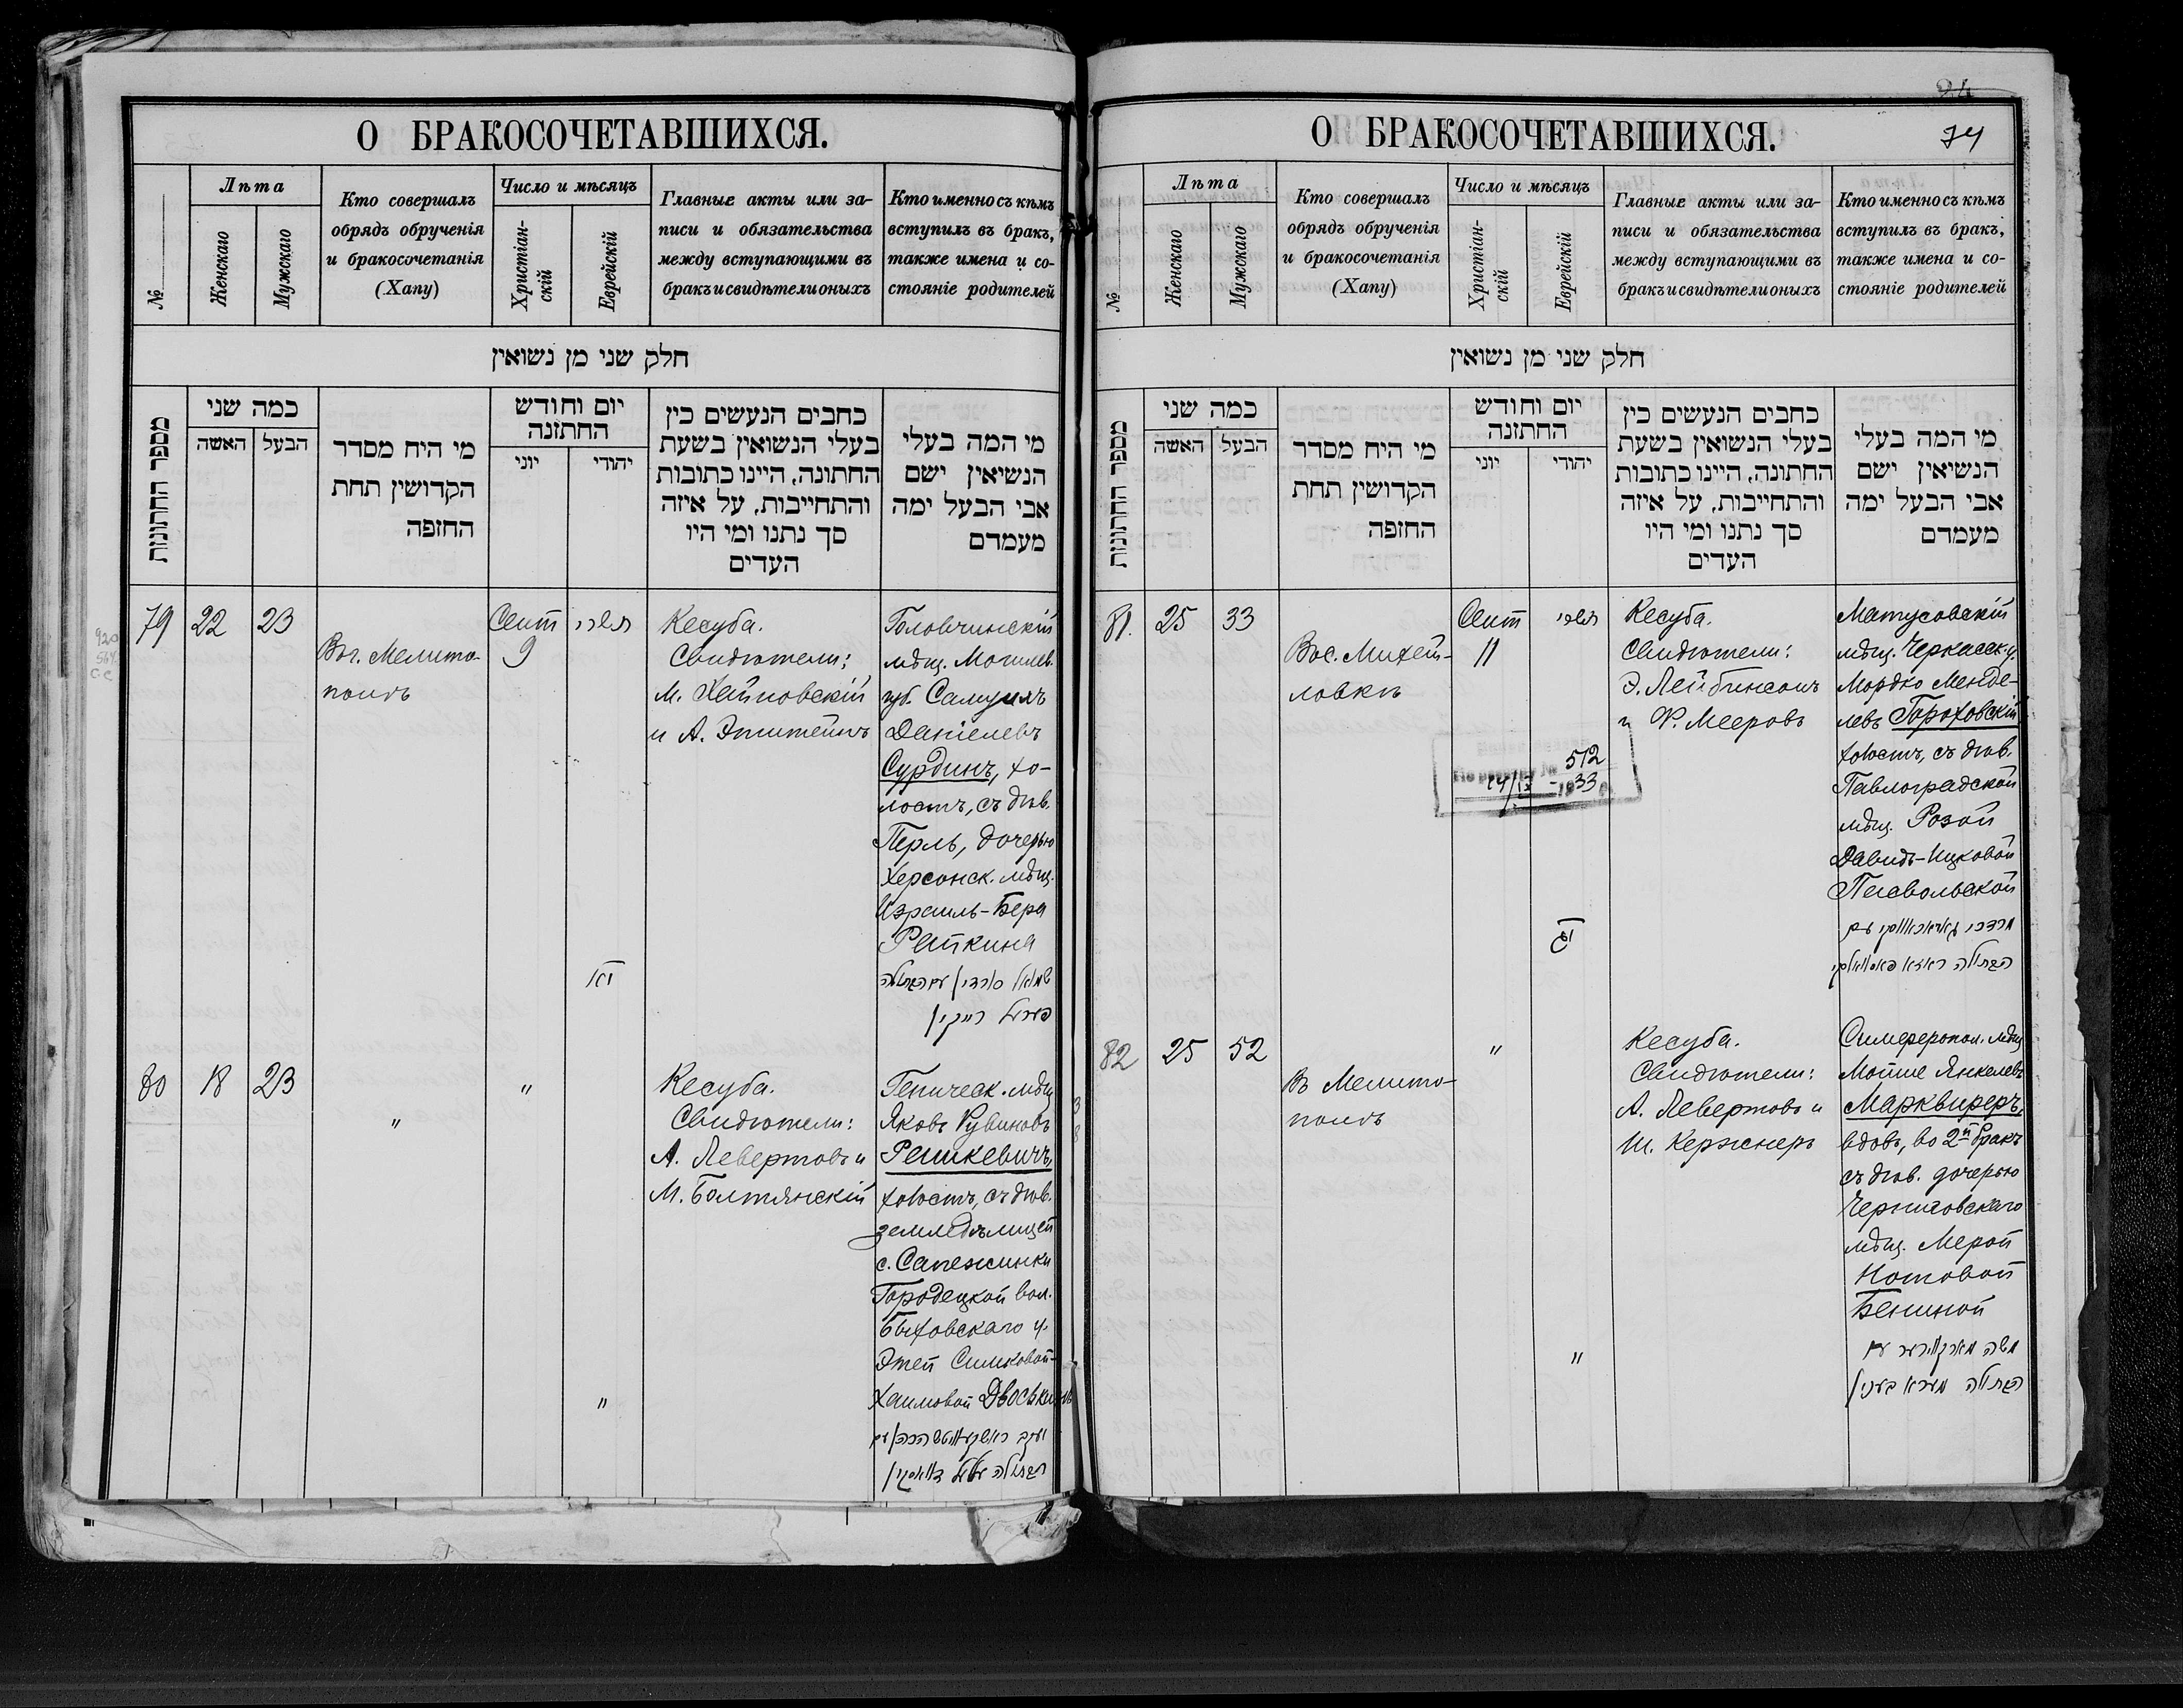 О БРАКОСОЧЕТАВШИХСЯ.
№
Лѣта
Женскаго
Мужскаго
Кто совершалъ
обрядъ обрученія
и бракосочетанія
(Хапу)
Число и мѣсяцъ
Христіан-
скій
Еврейскій
Главные акты или за-
писи и обязательства
между вступающими въ
бракъ и свидѣтели оныхъ
Кто именно съ кѣмъ
вступилъ въ бракъ,
также имена и со-
стояніе родителей
חלק שני מן נשואין
מספר החתונות
כמה שני
האשה
הבעל
מי היח מסדר
הקדושין תחת
החופה
יום וחודש
החתונה
יוני
יהודי
כתבים הנעשים בין
בעלי הנשואין בשעת
החתונה, היינו כתובות
והתחייבות, על איזה
סך נתנו ומי היו
העדים
מי המה בעלי
הנשיאין ישם
אבי הבעל ימה
מעמדם
79
22
23
Мелито-
полѣ
Сент
9
תשרי
Кесуба.
Свидѣтели:
М. Хайновскій
и А. Эпштейнъ
Головчинскій
мѣщ. Могилев.
губ. Самуилъ
Даніелевъ
Сурдинъ, хо-
лостъ, съ дѣв.
Перль, дочерью
Херсонск. мѣщ.
Израиль-Бера
Рейкина
שמואל סורדין עם הבתולה
פערל רייקין
80
18
23
"
"
"
Кесуба.
Свидѣтели:
А. Левертовъ и
М. Балтянскій
Геническ. мѣщ
Яковъ Рувиновъ
Решкевичъ,
холостъ, съ дѣв.
земледѣлицей
с. Сапежинки
Городецкой вол.
Быховскаго у.
Этей Симховой-
Хаимовой Двоськинъ
О БРАКОСОЧЕТАВШИХСЯ.
74
№
Лѣта
Женскаго
Мужскаго
Кто совершалъ
обрядъ обрученія
и бракосочетанія
(Хапу)
Число и мѣсяцъ
Христіан-
скій
Еврейскій
Главные акты или за-
писи и обязательства
между вступающими въ
бракъ и свидѣтели оныхъ
Кто именно съ кѣмъ
вступилъ въ бракъ,
также имена и со-
стояніе родителей
חלק שני מן נשואין
מספר החתונות
כמה שני
האשה
הבעל
מי היח מסדר
הקדושין תחת
החופה
יום וחודש
החתונה
יוני
יהודי
כתבים הנעשים בין
בעלי הנשואין בשעת
החתונה, היינו כתובות
והתחייבות, על איזה
סך נתנו ומי היו
העדים
מי המה בעלי
הנשיאין ישם
אבי הבעל ימה
מעמדם
81.
25
33
Вос. Михай-
ловкѣ
Сент
11
תשרי
512
Кесуба.
Свидѣтели:
Э. Лейбинсонъ
и Р. Мееровъ
Матусовскій
мѣщ. Черкасск. у.
Мордко Менде-
левъ Гороховскій
холостъ, съ дѣв.
Павлоградской
мѣщ. Розой
Давидъ-Ицковой
Песвольской
82
25
52
Въ Мелито-
полѣ
"
"
Кесуба.
Свидѣтели:
А. Левертовъ и
Ш. Кержнеръ
Симферопол. мѣщ
Мойше Янкелевъ
Марквиреръ,
вдовъ, во 2й бракъ
съ дѣв. дочерью
Черниговскаго
мѣщ. Мерой
Нотовой
Бениной
משה מארקווירער עם
הבתולה מערא בענין